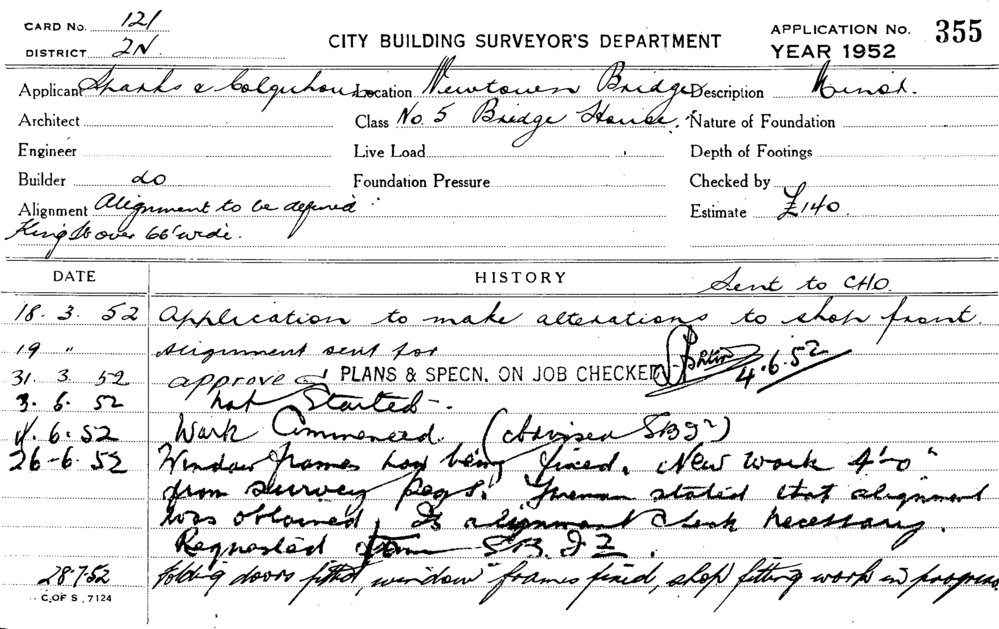 CARD No. 121
DISTRICT 2N.
CITY BUILDING SURVEYOR'S DEPARTMENT
APPLICATION No. 355
YEAR 1952
Applicant Sparks & Colquhoun Location Newtown Bridge Description Minor.
Architect Class No. 5 Bridge House. Nature of Foundation
Engineer Live Load Depth of Footings
Builder do Foundation Pressure Checked by
Alignment Alignment to be defined Estimate £140.
King St over 66' wide.
DATE HISTORY Sent to CHO.
18. 3. 52 Application to make alterations to shop front.
19 " Alignment sent for
31. 3. 52 approved PLANS & SPECN. ON JOB CHECKED 4.6.52
3. 6. 52 Not Started.
4. 6. 52 Work Commenced. (Advised
26-6. 52 Window frames now being fixed. New work 4'-0"
from survey pegs. Foreman stated that alignment
was obtained, Is alignment check necessary.
Requested from
28.7.52 folding doors fitted, window frames fixed, shop fitting work in progress.
C. OF S. 7124